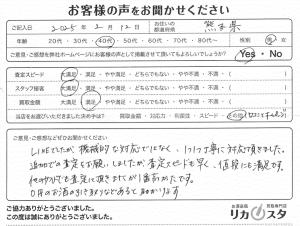 お客様の声をお聞かせください
ご記入日 2025年 2月 12日 お住いの都道府県 熊本県
年齢 20代・30代・40代・50代・60代・70代・80代～ 性別 男・女
ご意見・ご感想を弊社ホームページにお客様の声として掲載させて頂いてもよろしいでしょうか? Yes・No
査定スピード 大満足・満足・やや満足・どちらでもない・やや不満・不満
スタッフ接客 大満足・満足・やや満足・どちらでもない・やや不満・不満
買取金額 大満足・満足・やや満足・どちらでもない・やや不満・不満
当店をお選びいただきました決め手は? 買取金額・対応力・利便性・スピード・その他
ご意見・ご感想などぜひお聞かせください
LINEでしたが、機械的な対応ではなく、1つ1つ丁寧に対応して頂きました。
追加での査定もお願いしましたが、査定スピードも早く、値段にも満足です。
他の所でも査定に頂きましたが1番高かったです。
0円のお酒の引き取りなどあると助かります
ご協力ありがとうございました。
この度は誠にありがとうございました。
お酒高価買取専門店
リカスタ